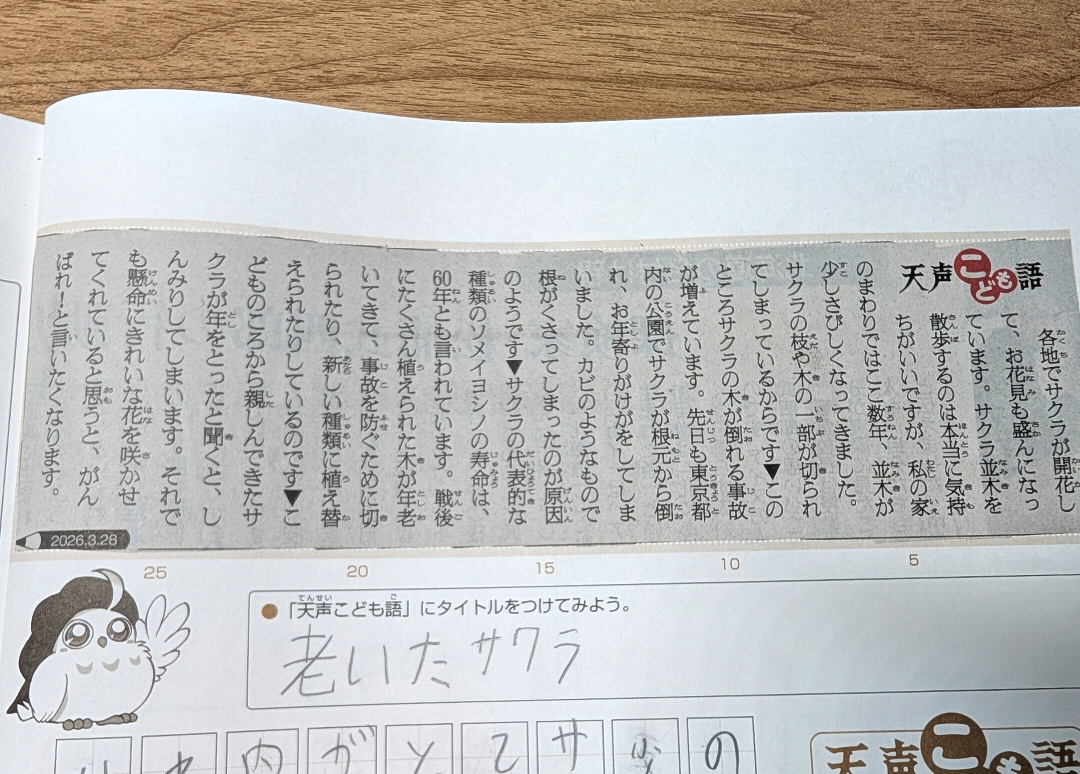 天声こども語
各地でサクラが開花し
て、お花見も盛んになっ
ています。サクラ並木を
散歩するのは本当に気持
ちがいいですが、私の家
のまわりではここ数年、並木が
少しさびしくなってきました。
サクラの枝や木の一部が切られ
てしまっているからです▼この
ところサクラの木が倒れる事故
が増えています。先日も東京都
内の公園でサクラが根元から倒
れ、お年寄りがけがをしてしま
いました。カビのようなもので
根がくさってしまったのが原因
のようです▼サクラの代表的な
種類のソメイヨシノの寿命は、
60年とも言われています。戦後
にたくさん植えられた木が年老
いてきて、事故を防ぐために切
られたり、新しい種類に植え替
えられたりしているのです▼こ
どものころから親しんできたサ
クラが年をとったと聞くと、し
んみりしてしまいます。それで
も懸命にきれいな花を咲かせ
てくれていると思うと、がん
ばれ！と言いたくなります。
2026.3.28
5
10
15
20
25
●「天声こども語」にタイトルをつけてみよう。
老いたサクラ
の
サ
て
と
が
内
天声こども語